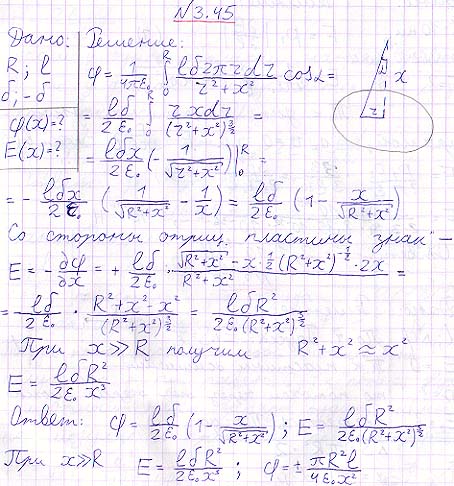 №3.45
Дано: Решение:
R; l
φ = 1/(4πε₀) ∫₀ᴿ (lб2πrdr)/(r²+x²) cosα =
б; -б
φ(x)=?
= lб/(2ε₀) ∫₀ᴿ rxdr/(r²+x²)^(3/2) =
E(x)=?
= lбx/(2ε₀) (-1/√(r²+x²))|₀ᴿ =
x
r
= - lбx/(2ε₀) (1/√(R²+x²) - 1/x) = lб/(2ε₀) (1 - x/√(R²+x²))
Со стороны отриц. пластины знак "-"
E = -∂φ/∂x = + lб/(2ε₀) · (√(R²+x²) - x·½(R²+x²)^(-1/2)·2x)/(R²+x²) =
= lб/(2ε₀) · (R²+x²-x²)/(R²+x²)^(3/2) = lбR²/(2ε₀(R²+x²)^(3/2))
При x≫R получим R²+x² ≈ x²
E = lбR²/(2ε₀x³)
Ответ: φ = lб/(2ε₀) (1 - x/√(R²+x²)); E = lбR²/(2ε₀(R²+x²)^(3/2))
При x≫R E = lбR²/(2ε₀x³); φ = ± πR²l/(4ε₀x²)